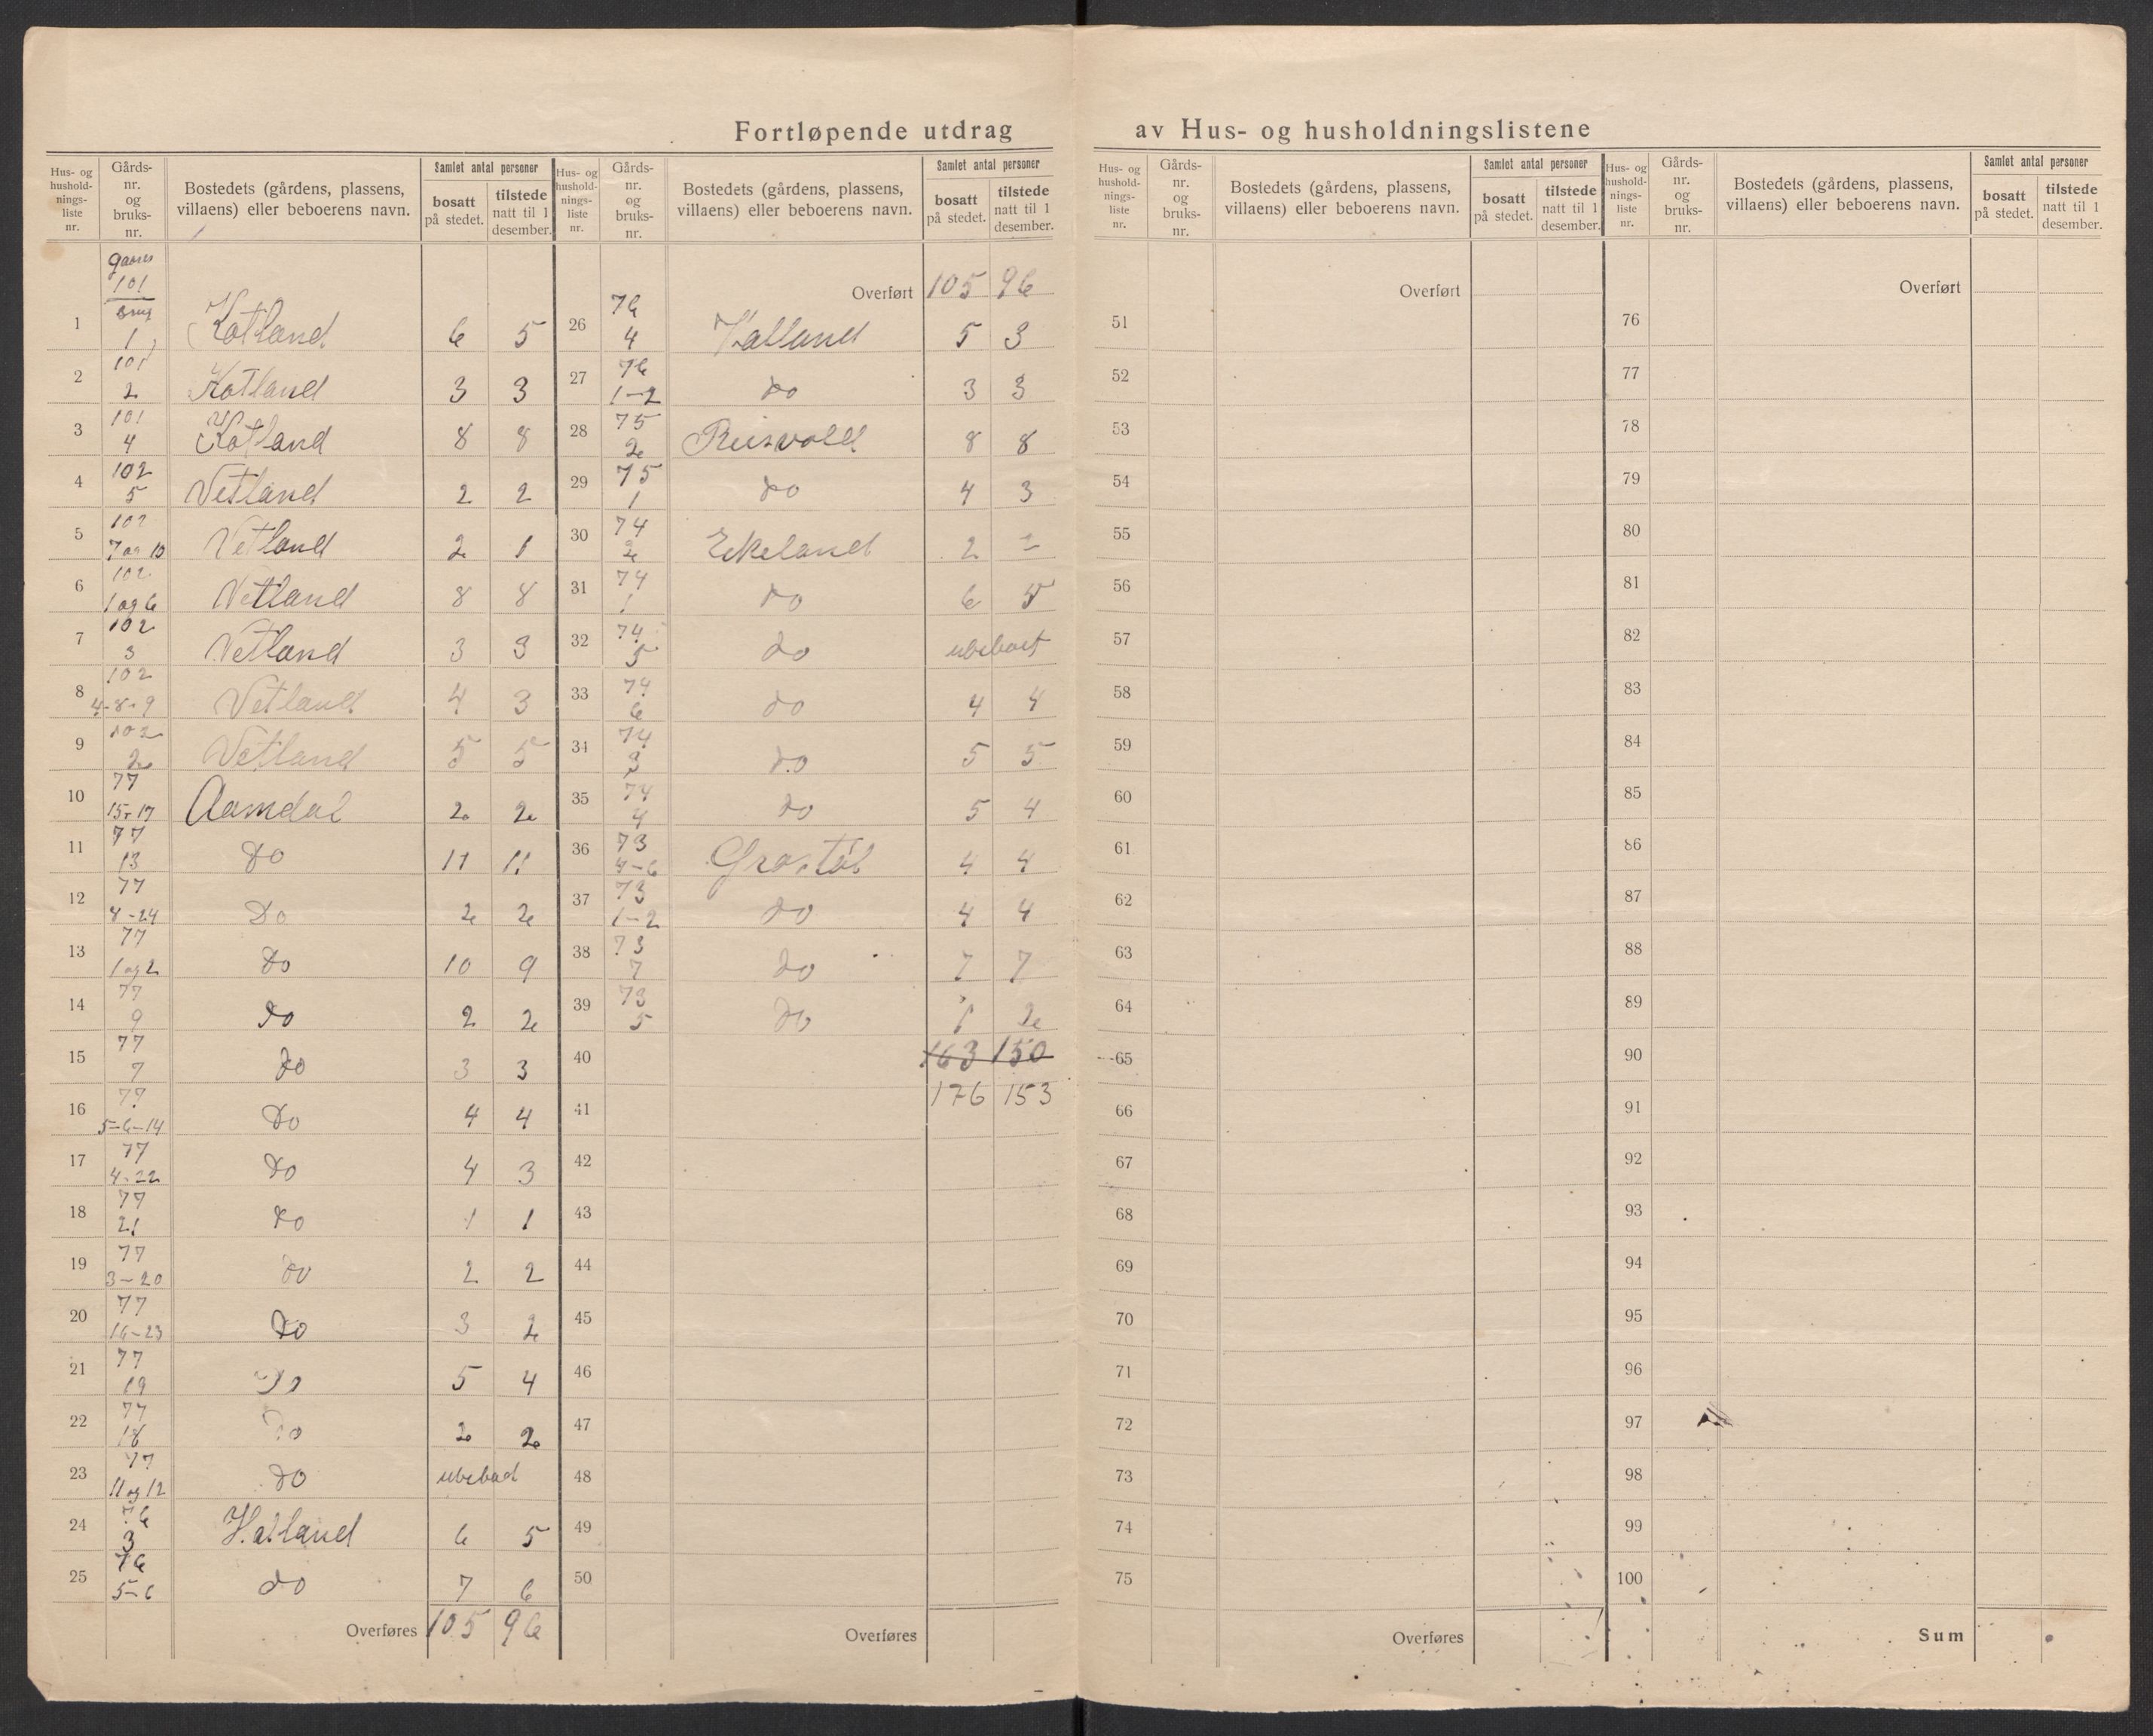 Fortløpende utdrag av Hus- og husholdningslistene
Hus- og hushold- nings- liste nr. | Gårds- nr. og bruks- nr. | Bostedets (gårdens, plassens, villaens) eller beboerens navn. | Samlet antal personer | bosatt på stedet. | tilstede natt til 1 desember.
1 | 101 1 | Kotland | 6 | 5
2 | 101 2 | Kotland | 3 | 3
3 | 101 4 | Kotland | 8 | 8
4 | 102 5 | Vetland | 2 | 2
5 | 102 7 og 10 | Vetland | 2 | 1
6 | 102 1 og 6 | Vetland | 8 | 8
7 | 102 3 | Vetland | 3 | 3
8 | 102 4-8-9 | Vetland | 4 | 3
9 | 102 2 | Vetland | 5 | 5
10 | 77 15-17 | Aamdal | 2 | 2
11 | 77 13 | Do | 11 | 11
12 | 77 8-24 | Do | 2 | 2
13 | 77 1 og 2 | Do | 10 | 9
14 | 77 9 | do | 2 | 2
15 | 77 7 | do | 3 | 3
16 | 77 5-6-14 | Do | 4 | 4
17 | 77 4-22 | Do | 4 | 3
18 | 77 21 | Do | 1 | 1
19 | 77 3-20 | do | 2 | 2
20 | 77 16-23 | Do | 3 | 2
21 | 77 19 | Do | 5 | 4
22 | 77 18 | Do | 2 | 2
23 | 77 11 og 12 | do | ubebod
24 | 76 3 | Hatland | 6 | 5
25 | 76 5-6 | do | 7 | 6
Overføres | 105 | 96
Hus- og hushold- nings- liste nr. | Gårds- nr. og bruks- nr. | Bostedets (gårdens, plassens, villaens) eller beboerens navn. | Samlet antal personer | bosatt på stedet. | tilstede natt til 1 desember.
Overført | 105 | 96
26 | 76 4 | Hatland | 5 | 3
27 | 76 1-2 | do | 3 | 3
28 | 75 2 | Reisvold | 8 | 8
29 | 75 1 | do | 4 | 3
30 | 74 2 | Eikeland | 2
31 | 74 1 | do | 6 | 5
32 | 74 5 | do | ubeboet
33 | 74 6 | do | 4 | 4
34 | 74 3 | do | 5 | 5
35 | 74 4 | do | 5 | 4
36 | 73 | 4 | 4
37 | 73 1-2 | do | 4 | 4
38 | 73 7 | do | 7 | 7
39 | 73 5 | do | 1 | 2
40 | 163 | 150
41 | 176 | 153
42
43
44
45
46
47
48
49
50
Overføres
Hus- og hushold- nings- liste nr. | Gårds- nr. og bruks- nr. | Bostedets (gårdens, plassens, villaens) eller beboerens navn. | Samlet antal personer | bosatt på stedet. | tilstede natt til 1 desember.
Overført
51
52
53
54
55
56
57
58
59
60
61
62
63
64
65
66
67
68
69
70
71
72
73
74
75
Overføres
Hus- og hushold- nings- liste nr. | Gårds- nr. og bruks- nr. | Bostedets (gårdens, plassens, villaens) eller beboerens navn. | Samlet antal personer | bosatt på stedet. | tilstede natt til 1 desember.
Overført
76
77
78
79
80
81
82
83
84
85
86
87
88
89
90
91
92
93
94
95
96
97
98
99
100
Sum